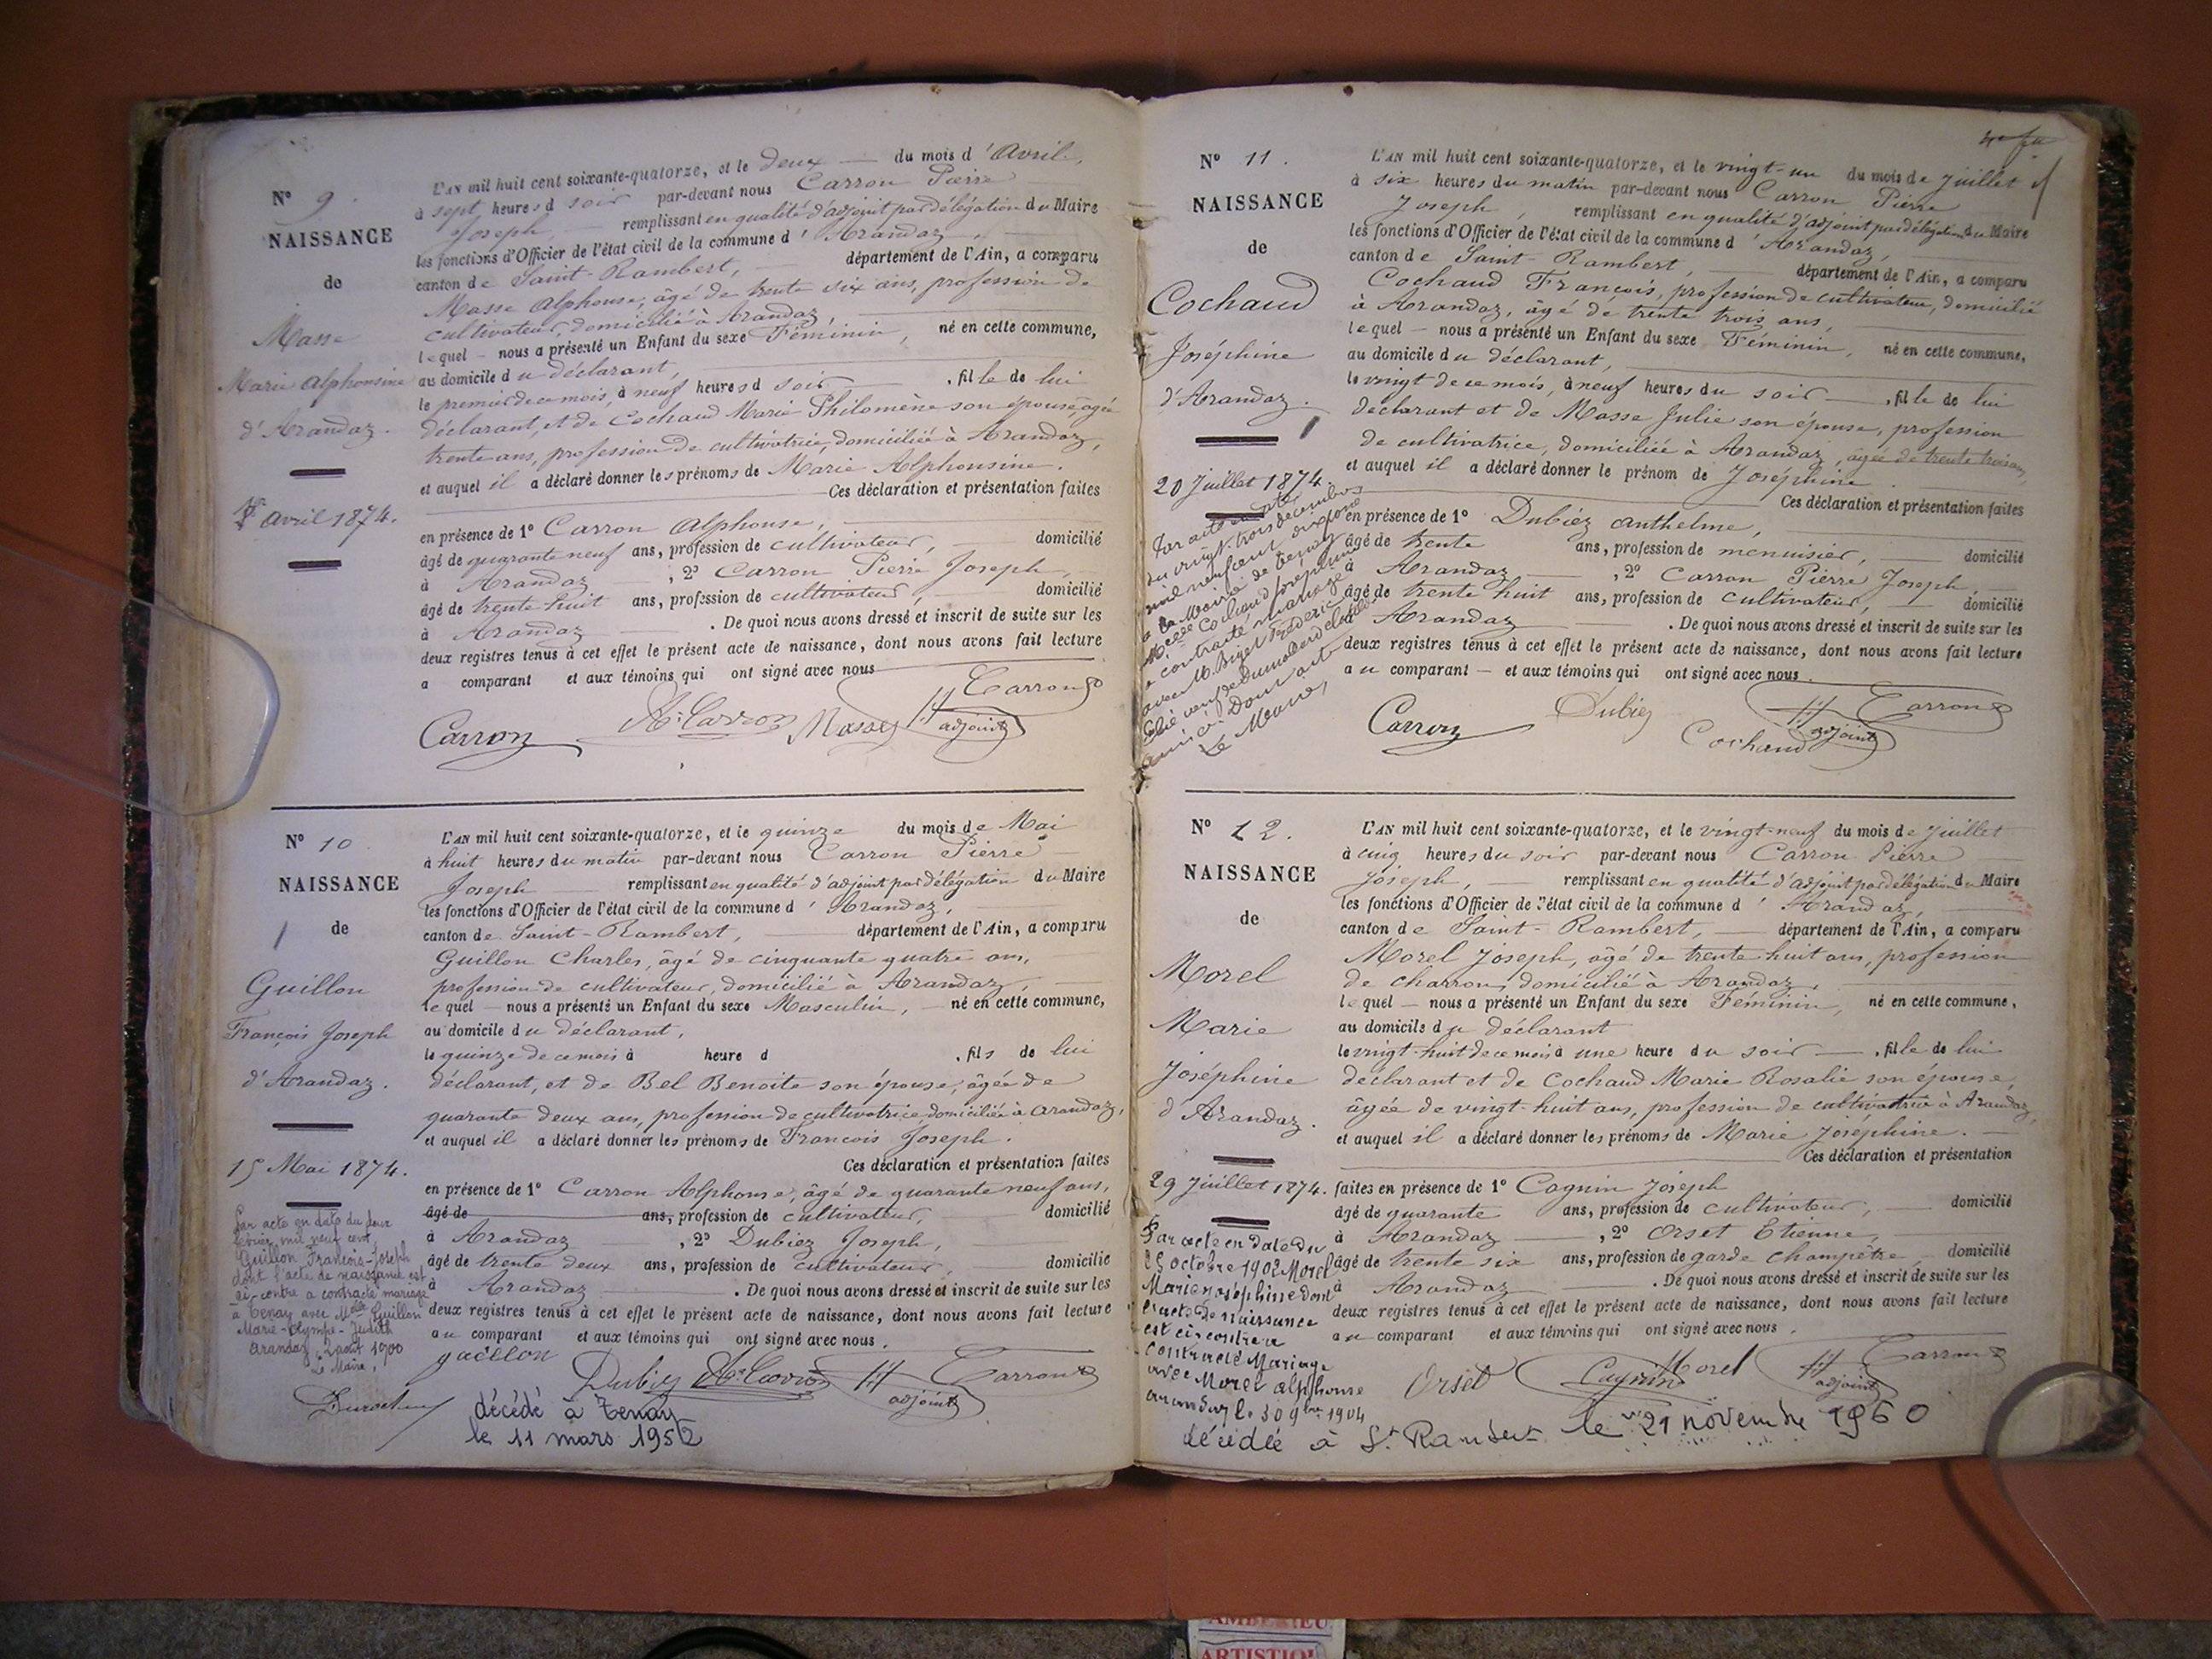 N° 9.
NAISSANCE
de
Masse
Marie Alphonsine
d'Arandaz.
1er Avril 1874.
L'AN mil huit cent soixante-quatorze, et le deux du mois d'Avril,
à sept heures d soir par-devant nous Carron Pierre
Joseph, remplissant en qualité d'adjoint par délégation du Maire
les fonctions d'Officier de l'état civil de la commune d'Arandaz,
canton de Saint-Rambert, département de l'Ain, a comparu
Masse Alphonse, âgé de trente six ans, profession de
cultivateur, domicilié à Arandaz,
lequel nous a présenté un Enfant du sexe Féminin, né en cette commune,
au domicile du déclarant,
le premier de ce mois, à neuf heures d soir , fille de lui
déclarant, et de Cochaud Marie Philomène son épouse, âgée
trente ans, profession de cultivatrice, domiciliée à Arandaz,
et auquel il a déclaré donner les prénoms de Marie Alphonsine.
Ces déclaration et présentation faites
en présence de 1° Carron Alphonse,
âgé de quarante neuf ans, profession de cultivateur, domicilié
à Arandaz, 2° Carron Pierre Joseph,
âgé de trente huit ans, profession de cultivateur, domicilié
à Arandaz . De quoi nous avons dressé et inscrit de suite sur les
deux registres tenus à cet effet le présent acte de naissance, dont nous avons fait lecture
a comparant et aux témoins qui ont signé avec nous
Carron
Ae Carron
Masse
Carron
adjoint
N° 10.
NAISSANCE
de
Guillon
François Joseph
d'Arandaz.
15 Mai 1874.
Par acte en date du deux
février mil neuf cent,
Guillon François-Joseph
dont l'acte de naissance est
ci-contre a contracté mariage
à Tenay avec Melle Guillon
Marie-Olympe-Judith
Arandaz, 2 août 1900
Le Maire,
L'AN mil huit cent soixante-quatorze, et le quinze du mois de Mai
à huit heures du matin par-devant nous Carron Pierre
Joseph remplissant en qualité d'adjoint par délégation du Maire
les fonctions d'Officier de l'état civil de la commune d'Arandaz,
canton de Saint-Rambert, département de l'Ain, a comparu
Guillon Charles, âgé de cinquante quatre ans,
profession de cultivateur, domicilié à Arandaz,
lequel nous a présenté un Enfant du sexe Masculin, né en cette commune,
au domicile du déclarant,
le quinze de ce mois à heure d , fils de lui
déclarant, et de Bel Benoite son épouse, âgée de
quarante deux ans, profession de cultivatrice, domiciliée à Arandaz,
et auquel il a déclaré donner les prénoms de Francois Joseph.
Ces déclaration et présentation faites
en présence de 1° Carron Alphonse, âgé de quarante neuf ans,
âgé de ans, profession de cultivateur, domicilié
à Arandaz , 2° Dubiez Joseph,
âgé de trente deux ans, profession de cultivateur, domicilié
à Arandaz . De quoi nous avons dressé et inscrit de suite sur les
deux registres tenus à cet effet le présent acte de naissance, dont nous avons fait lecture
au comparant et aux témoins qui ont signé avec nous.
Dubiez
Ae Carron
Carron
adjoint
décédé à Tenay
le 11 mars 1952
N° 11.
NAISSANCE
de
Cochaud
Joséphine
d'Arandaz.
20 Juillet 1874.
Par acte en date
du vingt-trois décembre
mil neuf cent dix
à la Mairie de Tenay
Melle Cochaud Joséphine
a contracté mariage
avec M. Frédéric
Le Maire,
L'AN mil huit cent soixante-quatorze, et le vingt-un du mois de Juillet
à six heures du matin par-devant nous Carron Pierre
Joseph, remplissant en qualité d'adjoint par délégation du Maire
les fonctions d'Officier de l'état civil de la commune d'Arandaz,
canton de Saint-Rambert, département de l'Ain, a comparu
Cochaud François, profession de cultivateur, domicilié
à Arandaz, âgé de trente trois ans,
lequel nous a présenté un Enfant du sexe Féminin, né en cette commune,
au domicile du déclarant,
le vingt de ce mois, à neuf heures du soir , fille de lui
déclarant et de Masse Julie son épouse, profession
de cultivatrice, domiciliée à Arandaz, âgée de trente trois ans,
et auquel il a déclaré donner le prénom de Joséphine.
Ces déclaration et présentation faites
en présence de 1° Dubiez Anthelme,
âgé de trente ans, profession de menuisier, domicilié
à Arandaz , 2° Carron Pierre Joseph,
âgé de trente huit ans, profession de cultivateur, domicilié
à Arandaz . De quoi nous avons dressé et inscrit de suite sur les
deux registres tenus à cet effet le présent acte de naissance, dont nous avons fait lecture
au comparant et aux témoins qui ont signé avec nous.
Carron
Dubiez
Cochaud
Carron
adjoint
N° 12.
NAISSANCE
de
Morel
Marie
Joséphine
d'Arandaz.
29 Juillet 1874.
Par acte en date du
25 octobre 1902 Morel
Marie Joséphine dont
l'acte de naissance
est ci contre a
contracté Mariage
avec Morel alphonse
arandaz le 30 9bre 1904
L'AN mil huit cent soixante-quatorze, et le vingt-neuf du mois de Juillet
à cinq heures du soir par-devant nous Carron Pierre
Joseph, remplissant en qualité d'adjoint par délégation du Maire
les fonctions d'Officier de l'état civil de la commune d'Arandaz,
canton de Saint-Rambert, département de l'Ain, a comparu
Morel Joseph, âgé de trente huit ans, profession
de charron, domicilié à Arandaz,
lequel nous a présenté un Enfant du sexe Féminin, né en cette commune,
au domicile du déclarant
le vingt-huit de ce mois à une heure du soir , fille de lui
déclarant et de Cochaud Marie Rosalie son épouse,
âgée de vingt-huit ans, profession de cultivatrice à Arandaz,
et auquel il a déclaré donner les prénoms de Marie Joséphine.
Ces déclaration et présentation
faites en présence de 1° Cagnin Joseph
âgé de quarante ans, profession de cultivateur, domicilié
à Arandaz , 2° Orset Etienne,
âgé de trente six ans, profession de garde champêtre, domicilié
à Arandaz . De quoi nous avons dressé et inscrit de suite sur les
deux registres tenus à cet effet le présent acte de naissance, dont nous avons fait lecture
au comparant et aux témoins qui ont signé avec nous.
Orset
Cagnin
Morel
Carron
adjoint
décédée à St Rambert le 21 novembre 1960
AMBERIEU